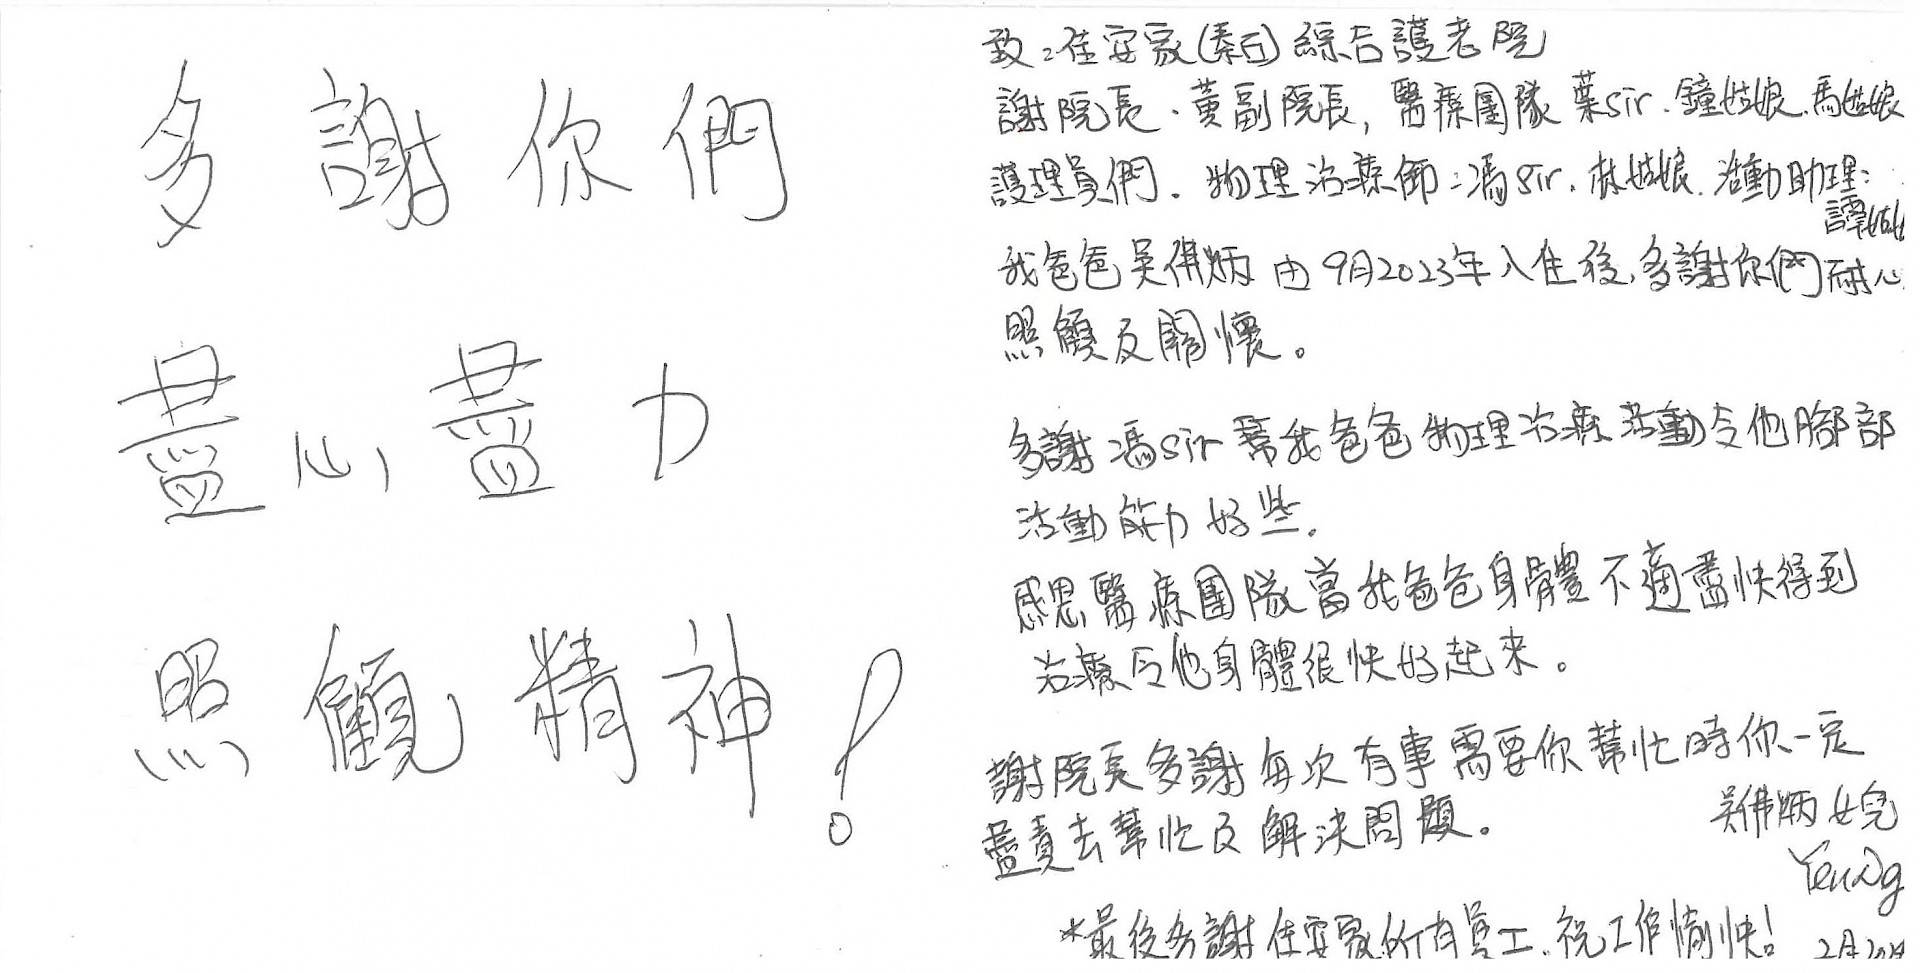 多謝你們
盡心盡力
照顧精神!
致:佳安家(秦石)綜合護老院
謝院長、黃副院長, 醫療團隊 葉sir.鐘姑娘.馬姑娘
護理員們. 物理治療師:馮sir. 林姑娘. 活動助理:
譚姑姑
我爸爸吳佛炳由9月2023年入住後,多謝你們耐心
照顧及關懷。
多謝馮sir幫我爸爸物理治療活動令他腳部
活動能力好些.
感恩醫療團隊當我爸爸身體不適盡快得到
治療令他身體很快好起來。
謝院長多謝每次有事需要你幫忙時你一定
盡責去幫忙及解決問題。
吳佛炳女兒
*最後多謝佳安家所有員工.祝工作愉快!
2月